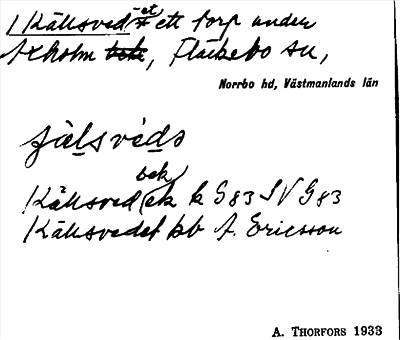 Källsved -et ett torp under
Axholm bok, Fläckebo sn,
Norrbo hd, Västmanlands län
bek
Källsved ek k G 83 S V G 83
Källsvedet kb A. Ericsson
A. THORFORS 1933